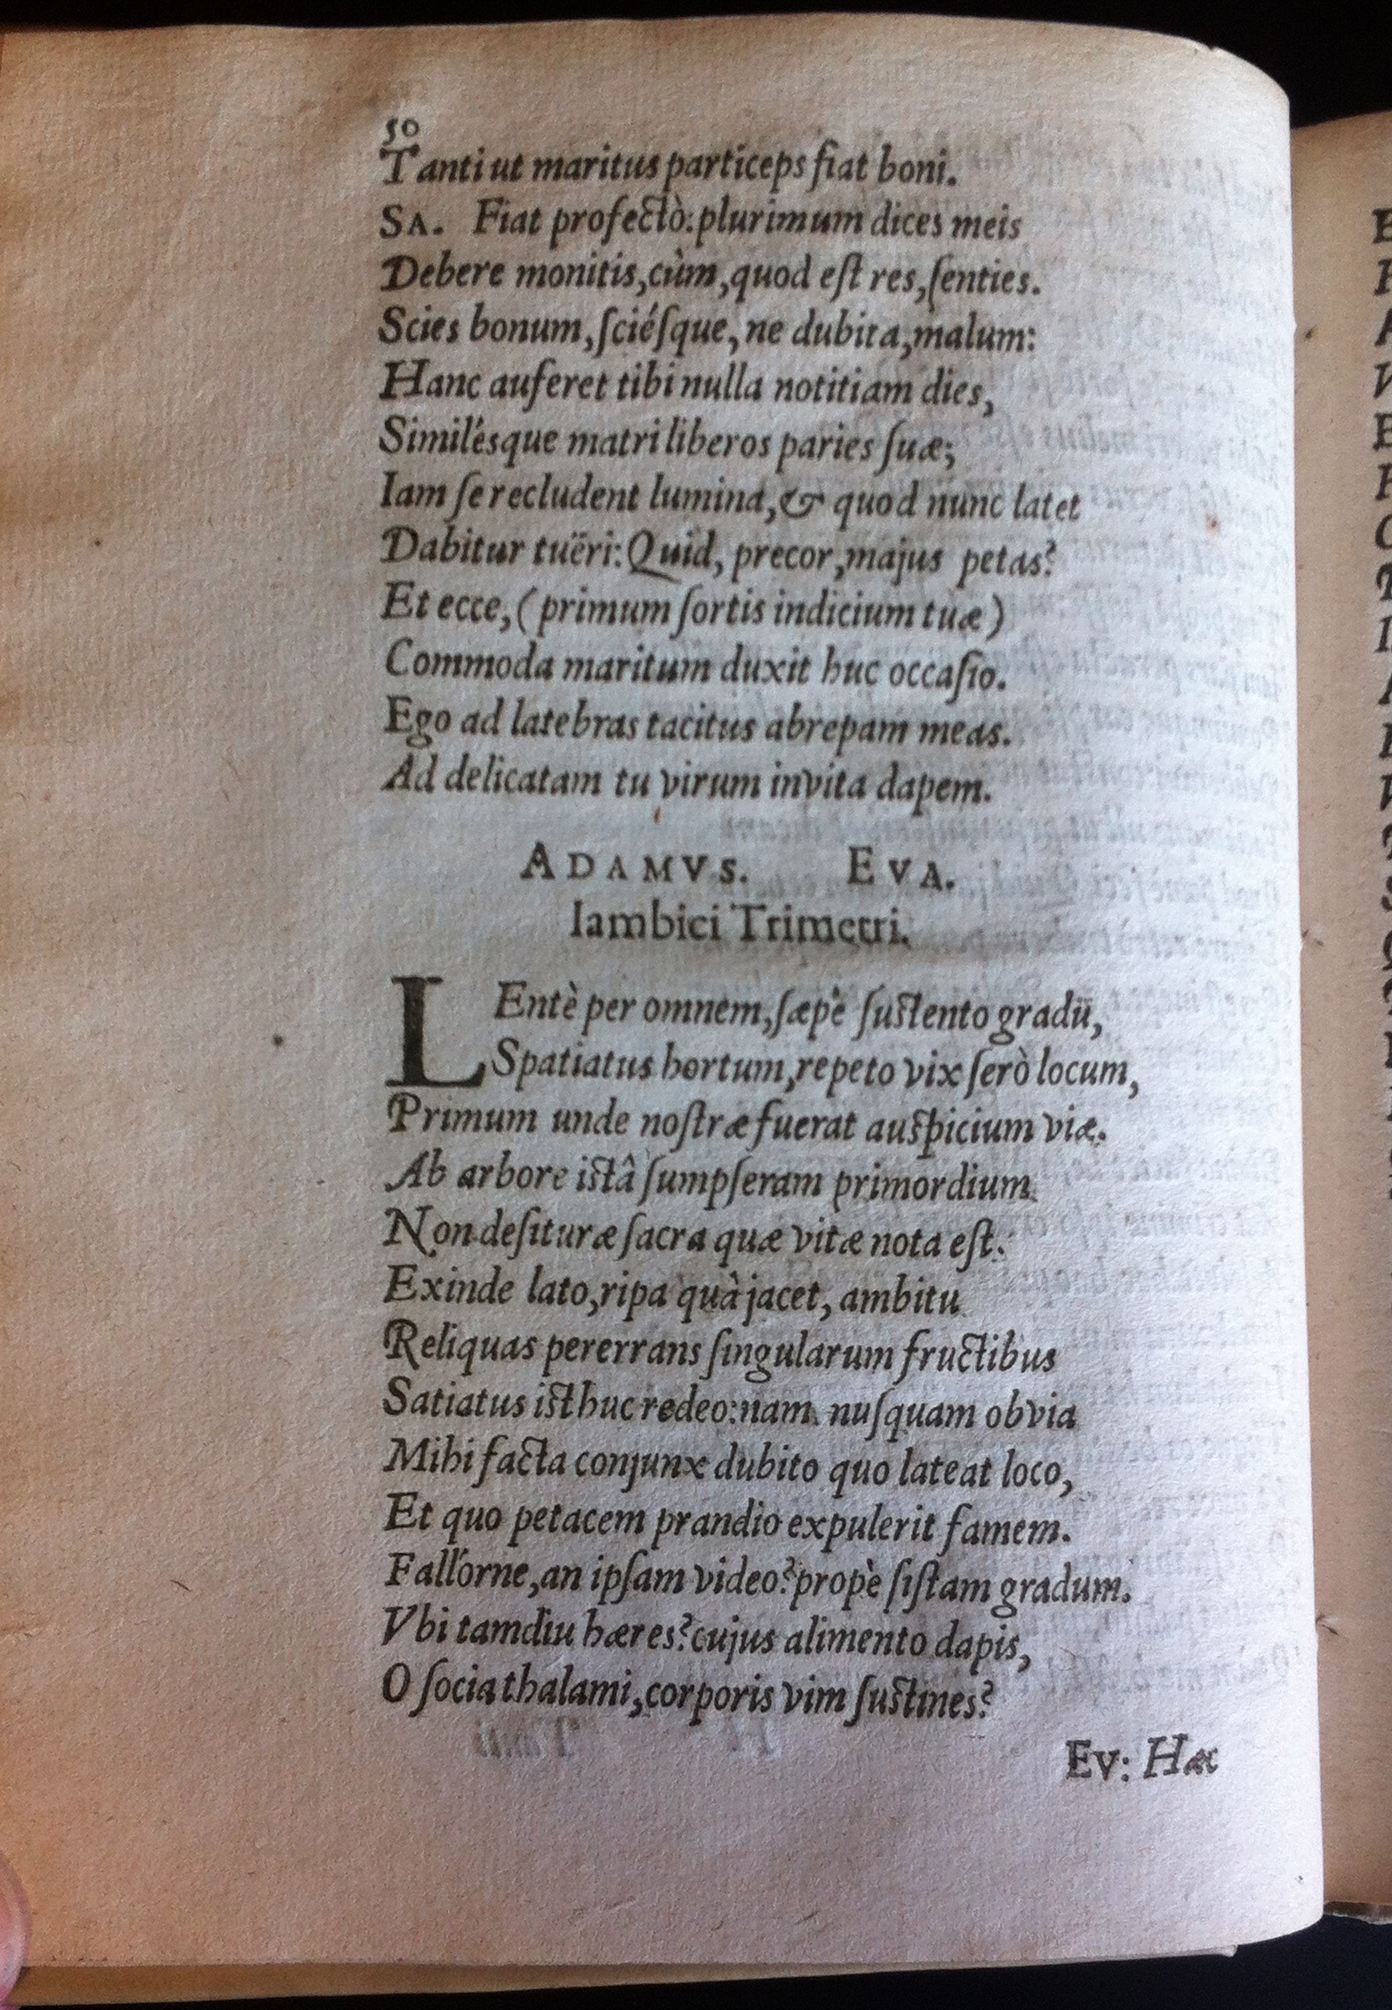 50
Tanti ut maritus particeps fiat boni.
SA. Fiat profectò: plurimum dices meis
Debere monitis, cùm, quod eſt res, ſenties.
Scies bonum, ſciéſque, ne dubita, malum:
Hanc auferet tibi nulla notitiam dies,
Similésque matri liberos paries ſuæ;
Iam ſe recludent lumina, & quod nunc latet
Dabitur tuëri: Quid, precor, majus petas?
Et ecce, (primum ſortis indicium tuæ)
Commoda maritum duxit huc occaſio.
Ego ad latebras tacitus abrepam meas.
Ad delicatam tu virum invita dapem.
ADAMVS. EVA.
Iambici Trimetri.
LEntè per omnem, ſæpè ſuſtento gradu,
Spatiatus hortum, repeto vix ſerò locum,
Primum unde noſtræ fuerat auſpicium viæ.
Ab arbore iſtâ ſumpſeram primordium
Non deſituræ ſacra quæ vitæ nota eſt.
Exinde lato, ripa quà jacet, ambitu
Reliquas pererrans ſingularum fructibus
Satiatus iſthuc redeo: nam nuſquam obvia
Mihi facta conjunx dubito quo lateat loco,
Et quo petacem prandio expulerit famem.
Fallorne, an ipſam video? propè ſiſtam gradum.
Vbi tamdiu hæres? cujus alimento dapis,
O ſocia thalami, corporis vim ſuſtines?
EV: Hæc